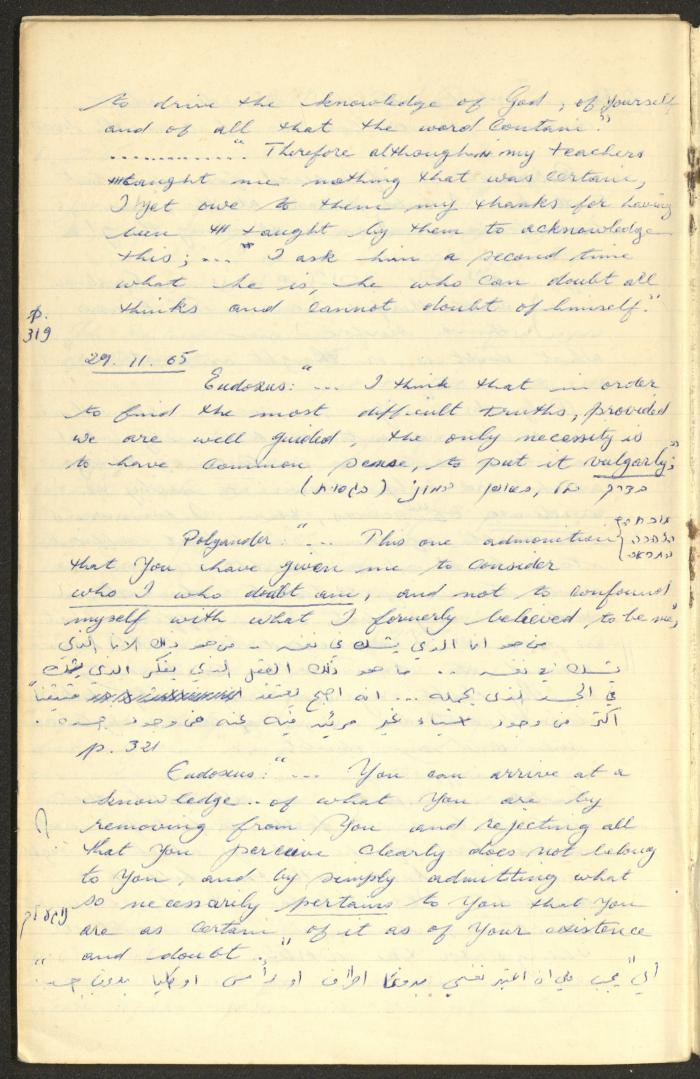 to drive the knowledge of God, of yourself
and of all that the word contain."
............" Therefore although my teachers
taught me nothing that was certain,
I yet owe to them my thanks for having
been taught by them to acknowledge
this; ..." I ask him a second time
what he is, he who can doubt all
thinks and cannot doubt of himself."
p.
319
29. 11. 65
Eudoxus: "... I think that in order
to find the most difficult truths, provided
we are well guided, the only necessity is
to have common sense, to put it vulgarly;"
בדרך כלל, באופן המוני (בגסות)
Polyander: "... This one admonition
that You have given me to consider
who I who doubt am, and not to confound
myself with what I formerly believed to be me;"
من هو انا الذي يشك في نفسه .. من هو ذلك الانا الذي
يشك في نفسه ... ما هو ذلك العقل الذي يفكر الذي يشك
في الجسد الذي يحمله ... انه اصبح يعتقد
اكثر من وجود اشياء غير مرئية فيه عنه من وجود جسده.
p. 321
Eudoxus: "... You can arrive at a
knowledge .. of what You are by
removing from You and rejecting all
that You perceive clearly does not belong
to You, and by simply admitting what
so necessarily pertains to You that You
are as certain of it as of Your existence
and doubt .."
اي "يجب علي ان اعتبر نفسي بدون اطراف او رأس او كليا بدون جسد."